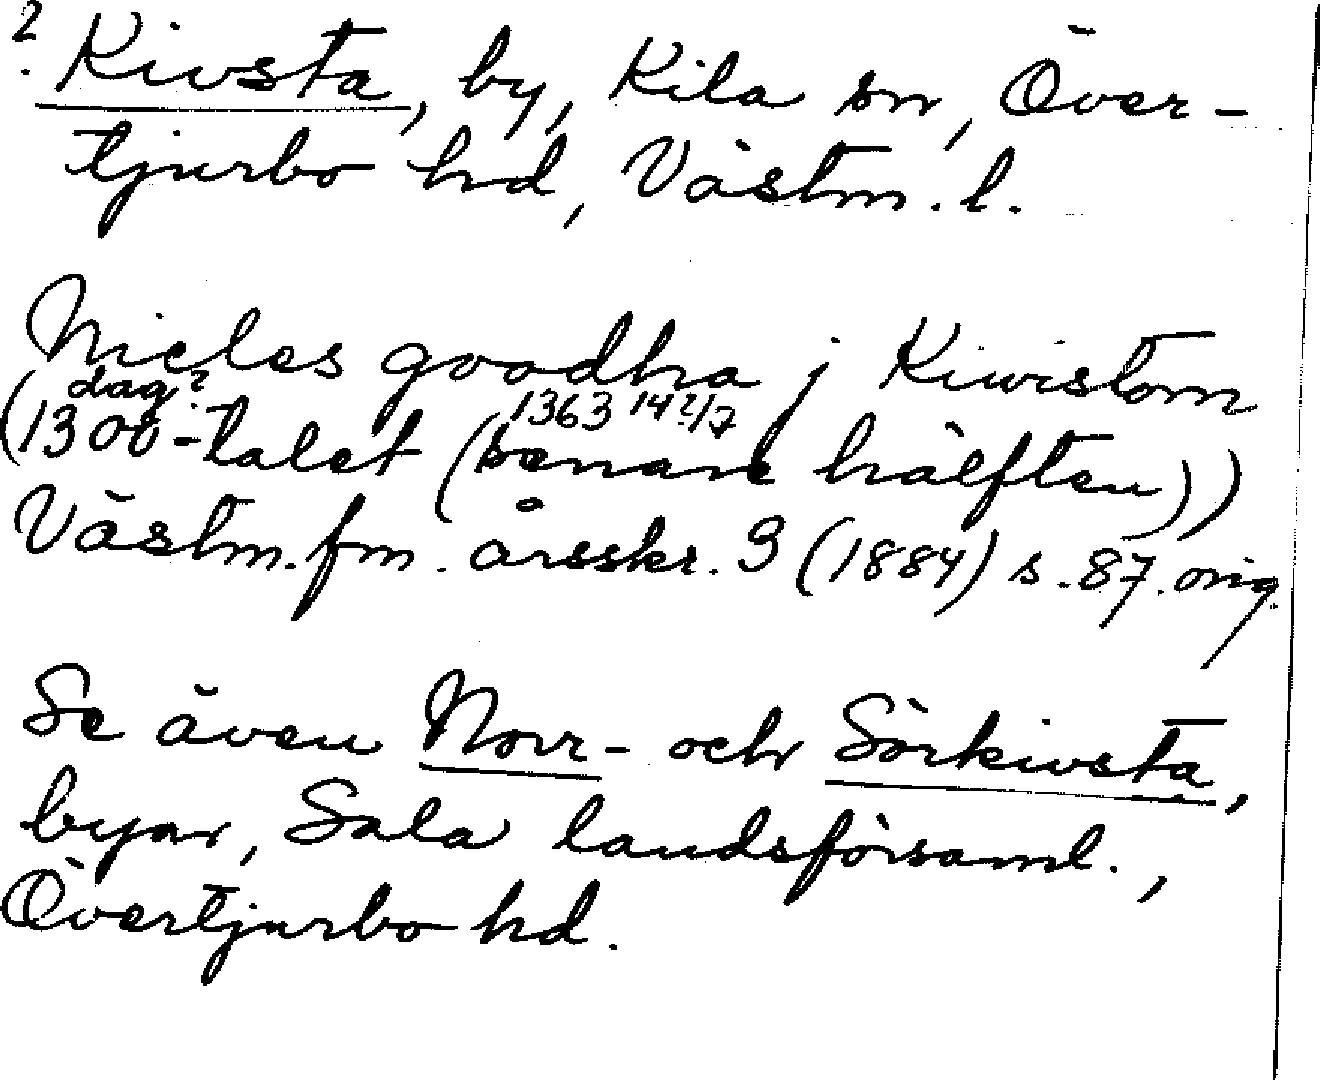 ? Kivsta, by, Kila sn, Över-
tjurbo hd, Västm. l.
Nicles goodha j Kiwistom
dag? 1363 14?/7
(1300-talet (senare hälften))
Västm. fm. årsskr. 3 (1884) s. 87. orig.
Se även Norr- och Sörkivsta,
byar, Sala landsförsaml.,
Övertjurbo hd.